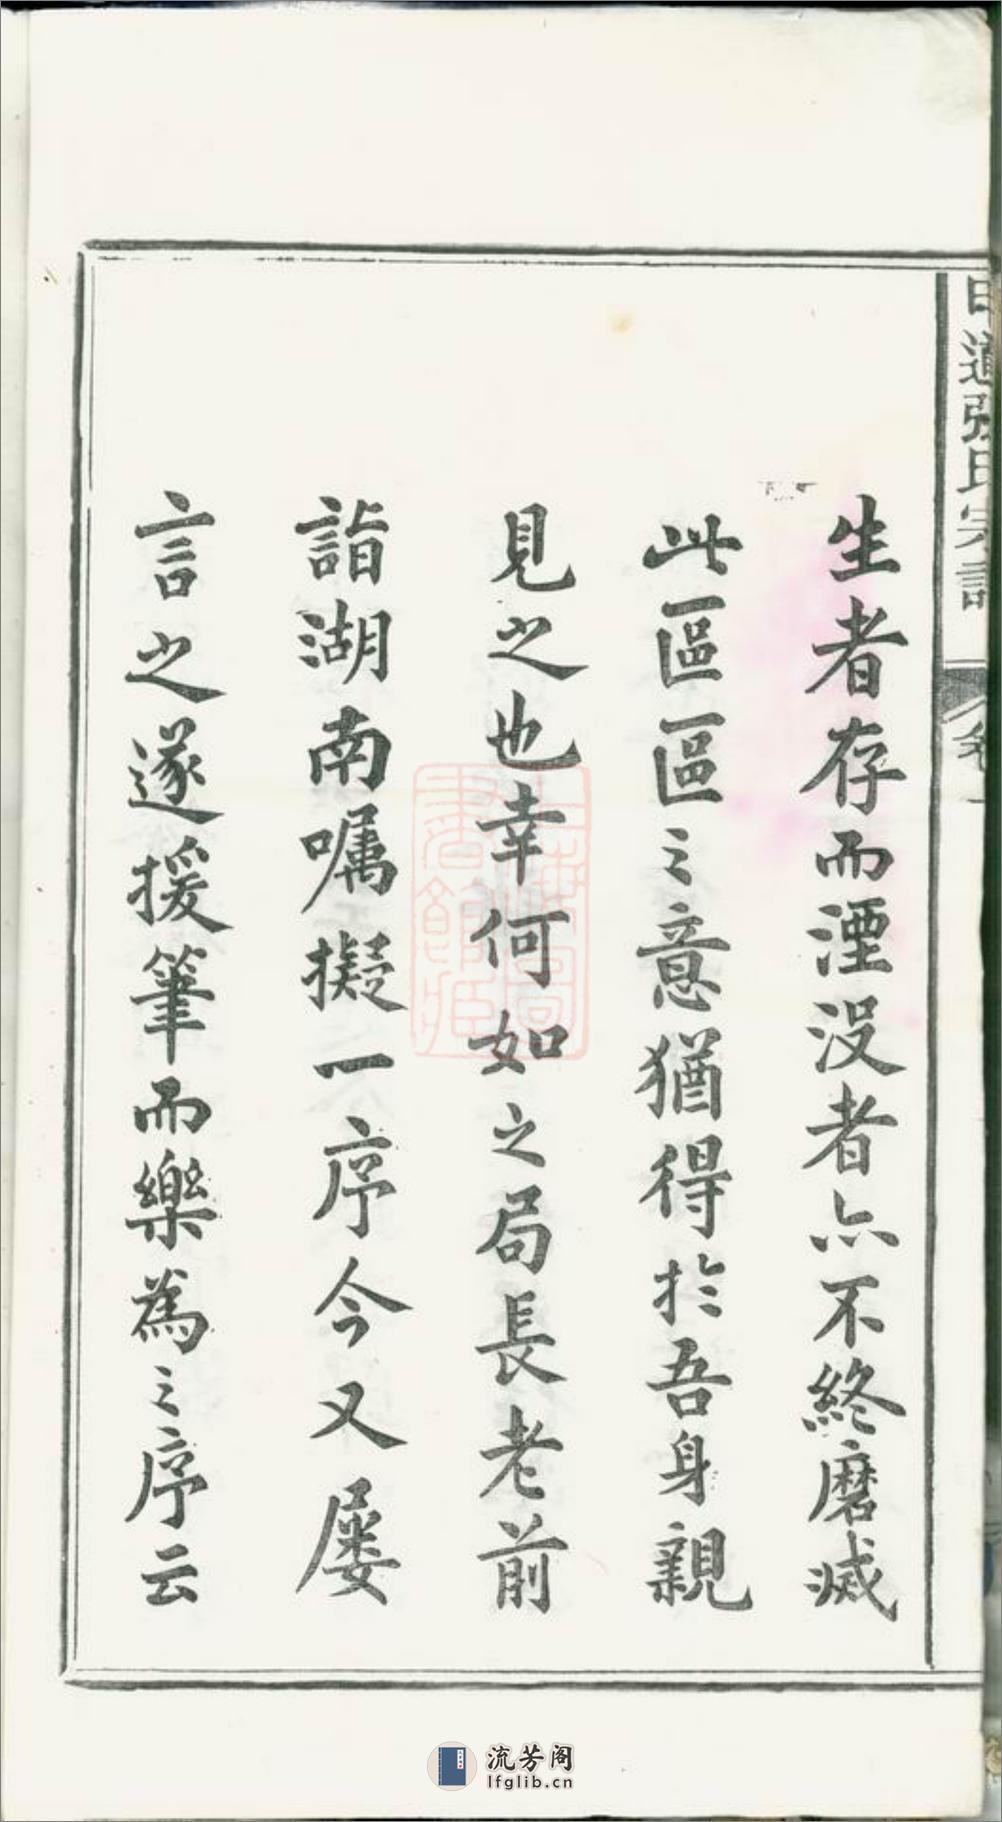 生者存而湮没者亦不終磨滅
此區區之意猶得於吾身親
見之也幸何如之局長老前
詣湖南囑擬一序今又屡
言之遂援筆而樂為之序云
道張氏宗譜
卷一
上海圖書館藏
流芳阁
lfglib.cn